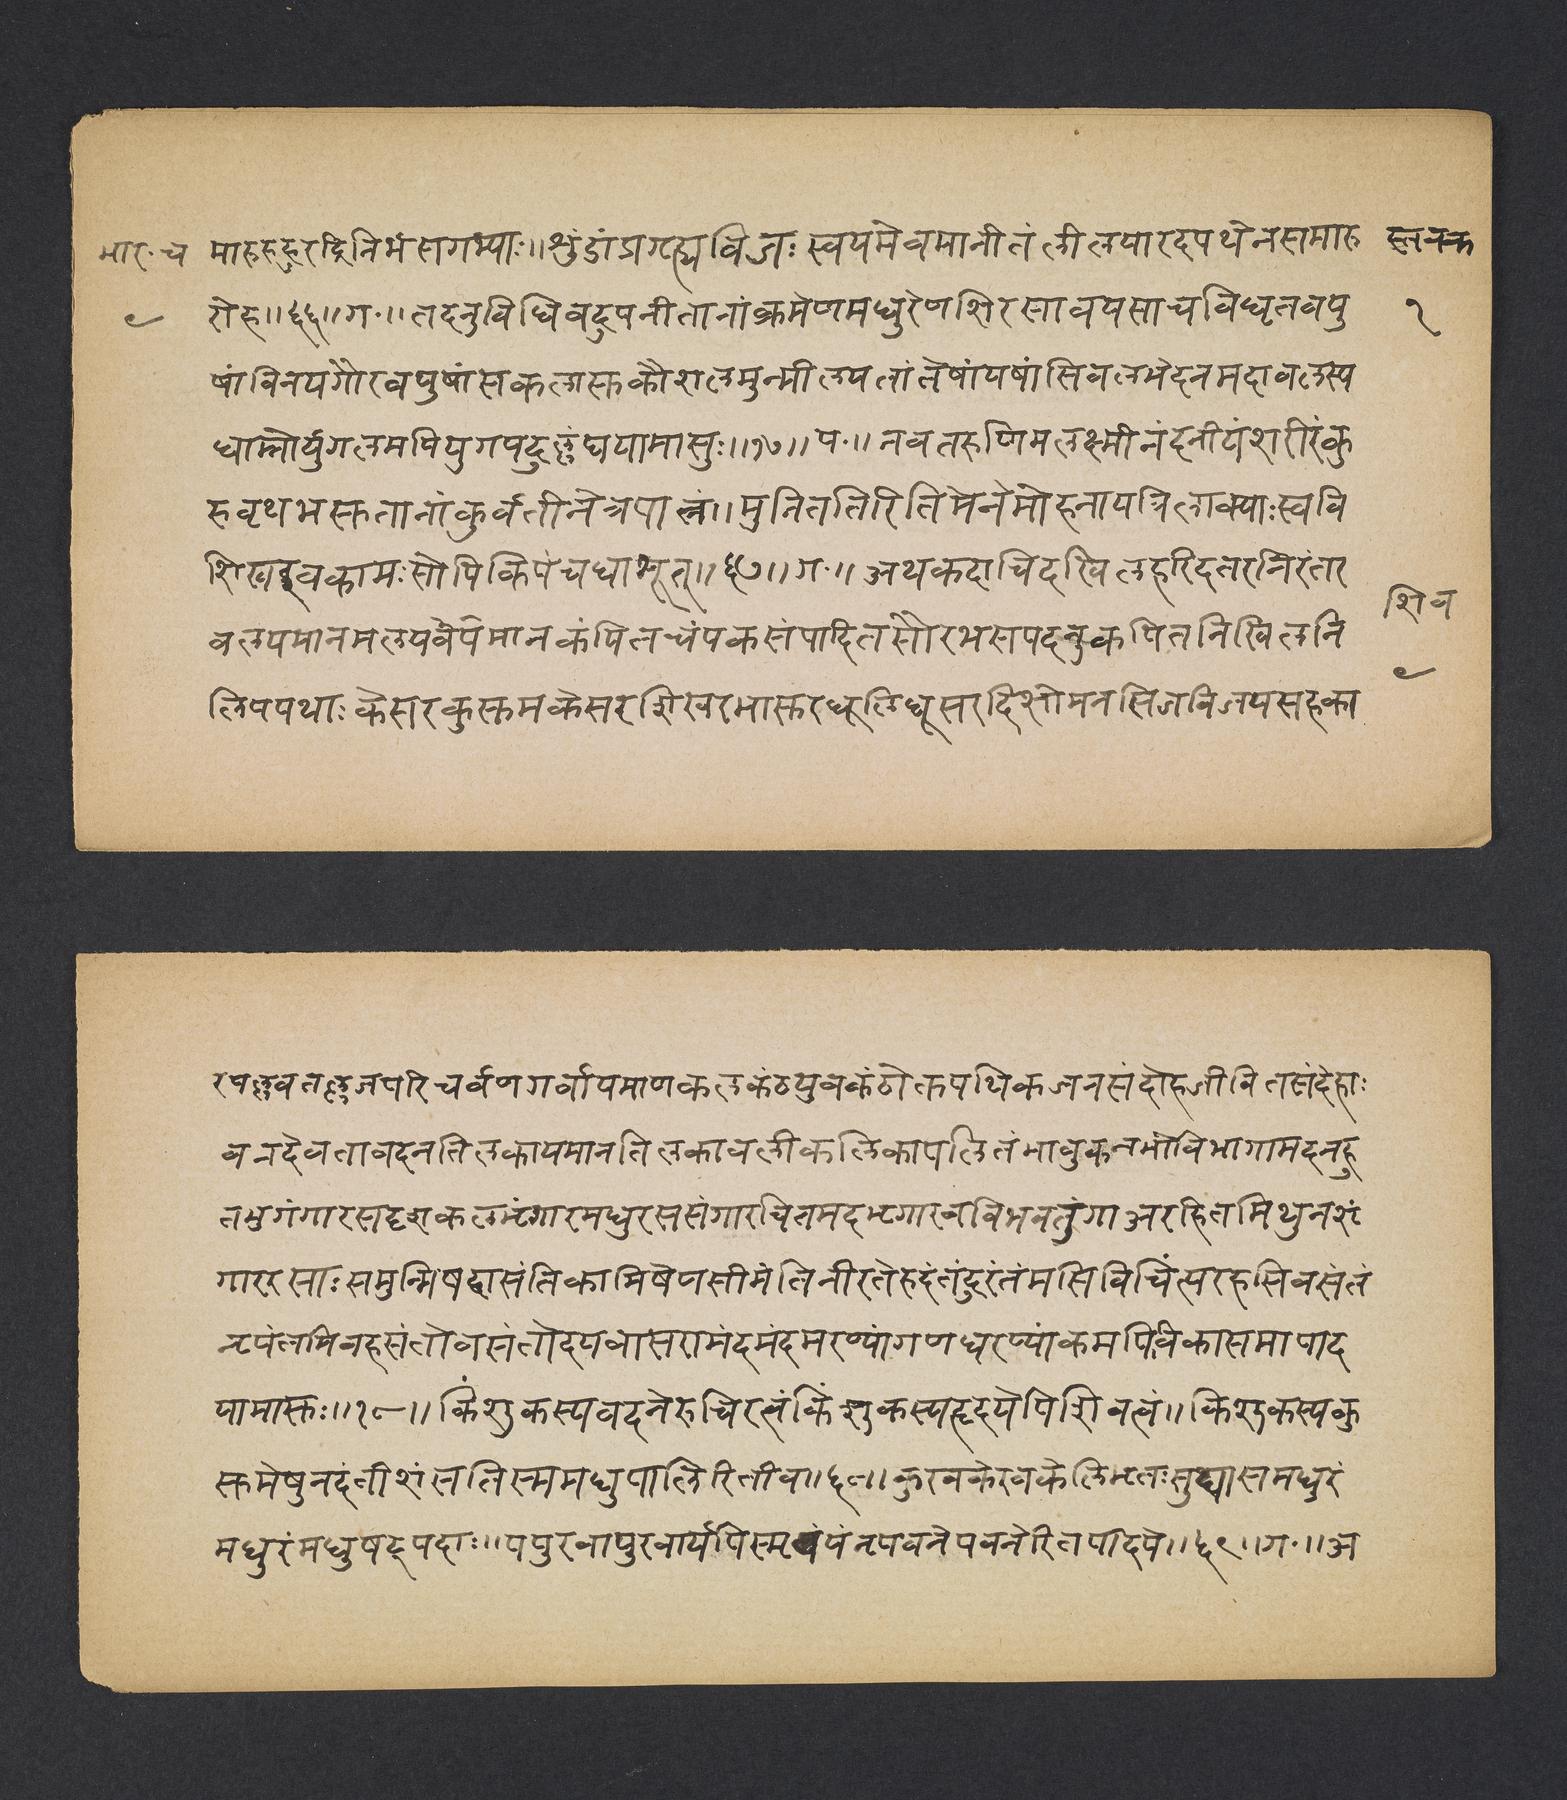 भार॰च
९
मारुरुहुरद्रिनिभं सगर्भ्याः॥ शुंडांप्रगृह्यविजः स्वयमेवमानीतं लीलयारदपथेनसमारु
रोह॥६६॥ग॰॥तदनुविधिवदुपनीतानांक्रमेणमधुरेणशिरसावयसाचविधृतवपु
षांविनयगौरवपुषांसकलास्त्रकौशलमुन्मीलयतांतेषांयेषांसिवलभेदनमदावलस्य
धाम्नोर्युगलमपियुगपदुल्लंघयामासुः॥१७॥प॰॥नवतरुणिमलक्ष्मीनंदनीयंशरीरंकु
रुवृथभस्त्रतानांकुर्वतीनेत्रपात्रं॥मुनिततिरितिमेनेमोहनायत्रिलोक्याःस्ववि
शिखइवकामःसोपिकिंपंचधाभूत्॥६७॥ग॰॥अथकदाचिदखिलहरिदंतरनिरंतर
वलयमानमलयवेपमानकंपितचंपकसंपादितसौरभसंपदनुकंपितनिखिलनि
लिंपपथाःकेसरकुसुमकेसरशिखरभासुरधूलिधूसरदिशोमनसिजविजयसहका
स्तबक
१
शिव
९
रपल्लवतल्लजपरिचर्वणगर्वायमाणकलकंठयुवकंठोक्तपथिकजनसंदोहजीवितसंदेहाः
वनदेवतावदनतिलकायमानतिलकावलीकलिकापलितंभावुकनभोविभागामदनहु
तभुगंगारसदृशकलभृंगारमधुरससंगारचितमदभृंगारवविभवतुंगाअरहितमिथुनशृं
गाररसाःसमुन्मिषद्वासंतिकामिषेणसीमंतिनीरतेरुदंतंदुरंतंमसिविचिंत्यरहसिवसंतं
नृपंतमिवहसंतोवसंतोदयवासरामंदमंदमरण्यांगणधरण्यांकमपिविकासमापाद
यामासुः॥१८॥किंशुकस्यवदनेरुचिरत्वंकिंशुकस्यहृदयेपिशिवत्वं॥किंशुकस्यकु
सुमेषुनदंतीशंसतिस्ममधुपालिरितीव॥६८॥कुरबकेरवकेलिभृतःसुधासमधुरं
मधुरंमधुषट्पदाः॥पपुरवापुरवार्यपिस्म पंनृपवनेपवनेरितपादपे॥६९॥ग॰॥अ